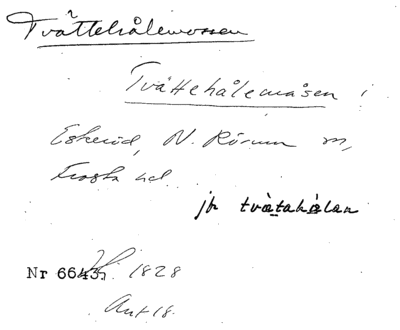 Tvättehålemossen
Tvättehålemåsen i
Eskeröd, N. Rörum sn,
Frosta hd.
jfr tvätahålan
Nr 6643. 1828
Ant 18.